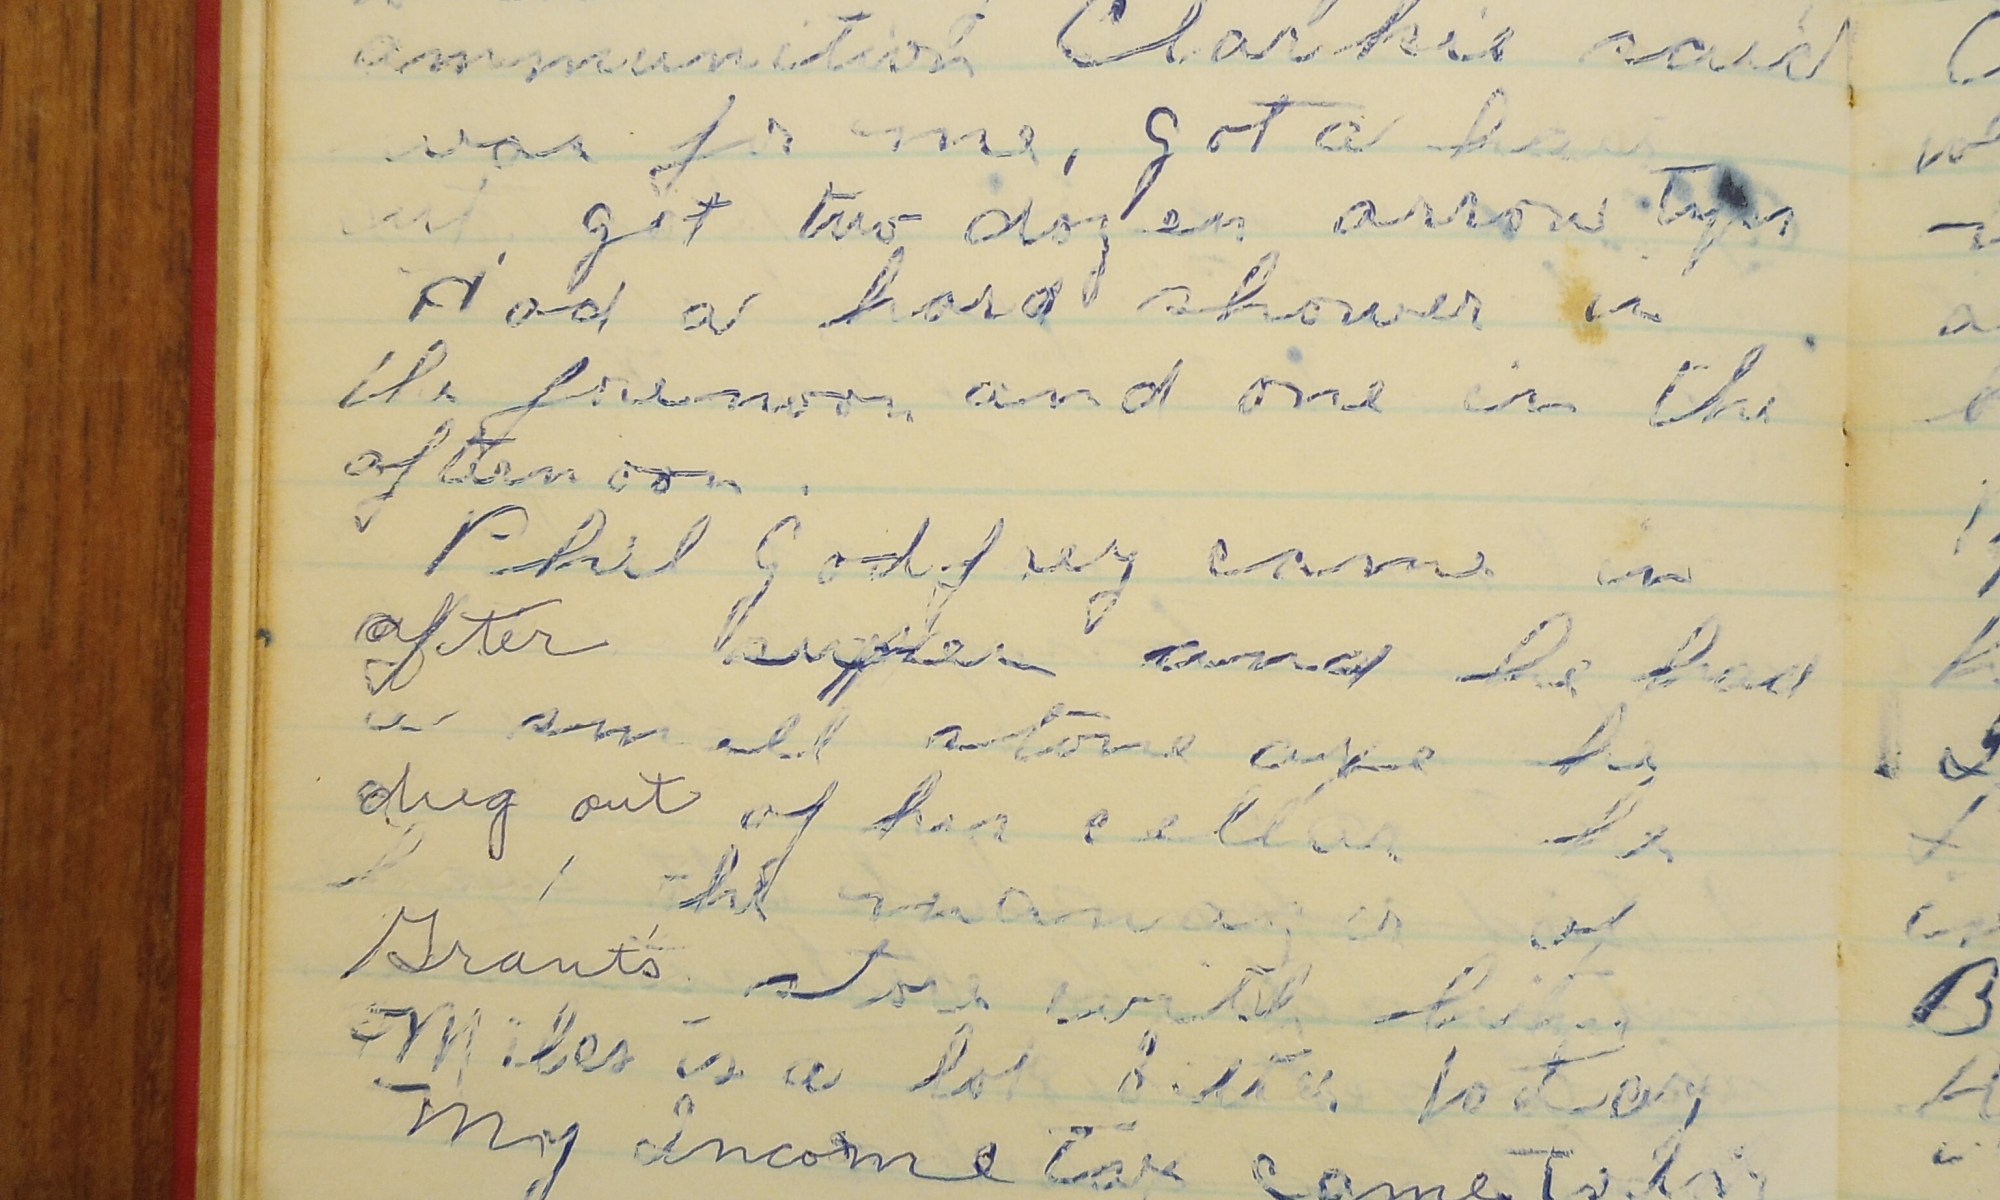 ammunition Clarkie said
was for me, got a hair
cut, got two dozen arrow tips
Had a hard shower in
the forenoon and one in the
afternoon.
Phil Godfrey came in
after supper and he had
a small stone axe he
dug out of his cellar he
is the manager of
Grant's store
Miles is a lot better today
My income tax came to